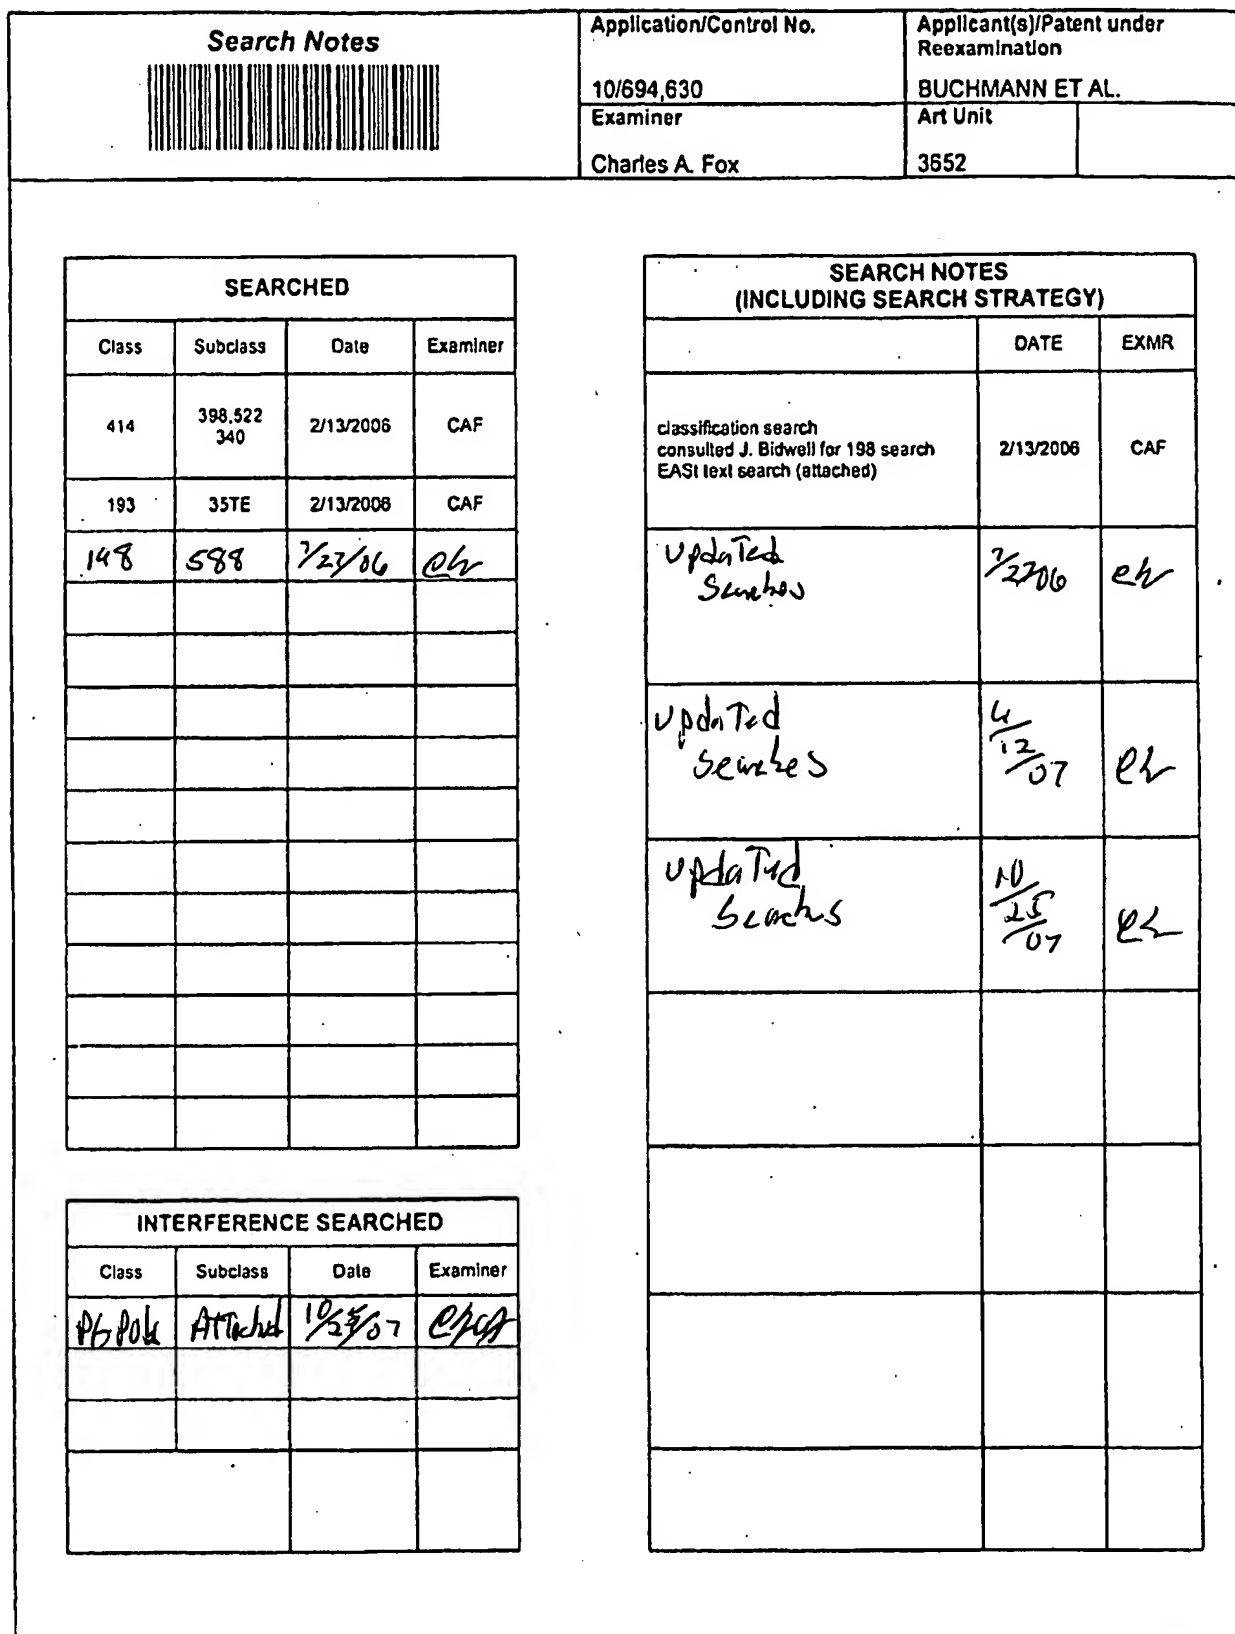 Search Notes
Application/Control No.
10/694,630
Applicant(s)/Patent under
Reexamination
BUCHMANN ET AL.
Examiner
Charles A. Fox
Art Unit
3652
SEARCHED
Class Subclass Date Examiner
414 398,522 2/13/2006 CAF
340
193 35TE 2/13/2006 CAF
198 588 7/27/06
INTERFERENCE SEARCHED
Class Subclass Date Examiner
Attached 10/25/07
SEARCH NOTES
(INCLUDING SEARCH STRATEGY)
DATE EXMR
classification search
consulted J. Bidwell for 198 search 2/13/2006 CAF
EASt text search (attached)
Updated 7/27/06
Searches
Updated 4/12/07
Searches
Updated 10/25/07
Searches